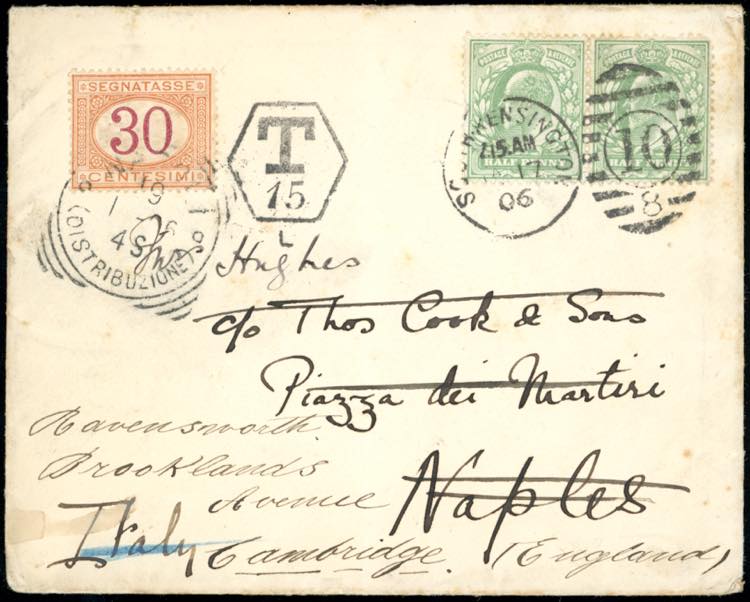 SEGNATASSE
30
CENTESIMI
T
15
L
POSTAGE & REVENUE
HALF PENNY
POSTAGE & REVENUE
HALF PENNY
KENSINGTON
.15 AM
17
06
10
8
19
(DISTRIBUZIONE)
Hughes
c/o Thos Cook & Sons
Piazza dei Martiri
Naples
Italy
Ravensworth
Brooklands
Avenue
Cambridge. (England)